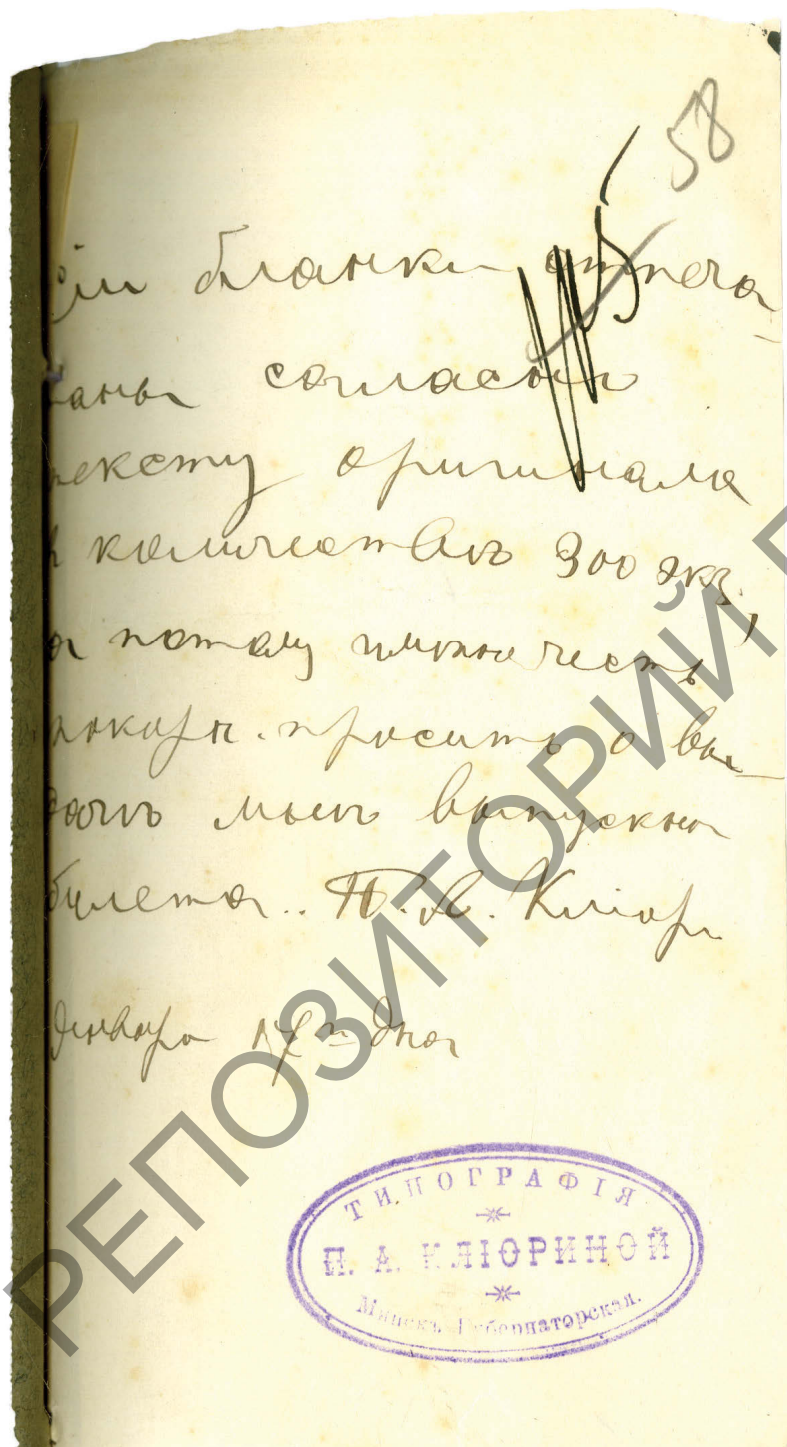 58
Сіи бланки отпеча-
таны согласно
тексту оригинала
в количествѣ 300 экз.,
а потому имѣю честь
покорн. просить о вы-
дачѣ мнѣ выпускн
билета.. П. А. Кліор
Января 17 дня
ТИПОГРАФІЯ
П. А. КЛІОРИНОЙ
Минскъ, Губернаторская.
РЕПОЗИТОРИЙ